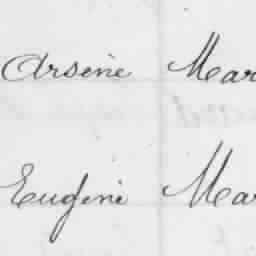 Arsène Mar
Eugéne Mar